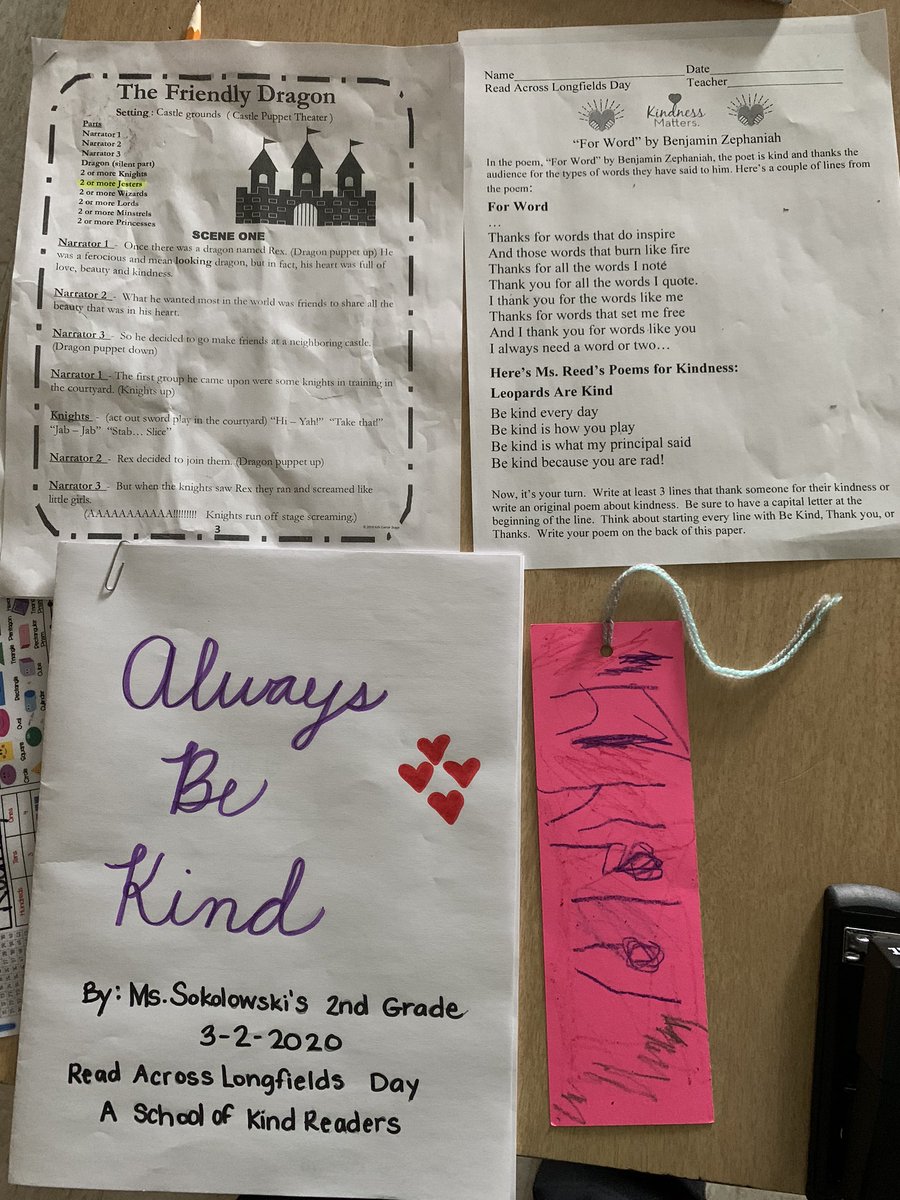 The Friendly Dragon
Setting : Castle grounds ( Castle Puppet Theater )
Parts
Narrator 1
Narrator 2
Narrator 3
Dragon (silent part)
2 or more Knights
2 or more Jesters
2 or more Wizards
2 or more Lords
2 or more Minstrels
2 or more Princesses
SCENE ONE
Narrator 1 - Once there was a dragon named Rex. (Dragon puppet up) He
was a ferocious and mean looking dragon, but in fact, his heart was full of
love, beauty and kindness.
Narrator 2 - What he wanted most in the world was friends to share all the
beauty that was in his heart.
Narrator 3 - So he decided to go make friends at a neighboring castle.
(Dragon puppet down)
Narrator 1 - The first group he came upon were some knights in training in
the courtyard. (Knights up)
Knights - (act out sword play in the courtyard) “Hi – Yah!” “Take that!”
“Jab – Jab” “Stab… Slice”
Narrator 2 - Rex decided to join them. (Dragon puppet up)
Narrator 3 - But when the knights saw Rex they ran and screamed like
little girls.
(AAAAAAAAAAA!!!!!!!!! Knights run off stage screaming.)
3
Name Date
Read Across Longfields Day Teacher
Kindness
Matters.
“For Word” by Benjamin Zephaniah
In the poem, “For Word” by Benjamin Zephaniah, the poet is kind and thanks the
audience for the types of words they have said to him. Here’s a couple of lines from
the poem:
For Word
…
Thanks for words that do inspire
And those words that burn like fire
Thanks for all the words I noté
Thank you for all the words I quote.
I thank you for the words like me
Thanks for words that set me free
And I thank you for words like you
I always need a word or two…
Here’s Ms. Reed’s Poems for Kindness:
Leopards Are Kind
Be kind every day
Be kind is how you play
Be kind is what my principal said
Be kind because you are rad!
Now, it’s your turn. Write at least 3 lines that thank someone for their kindness or
write an original poem about kindness. Be sure to have a capital letter at the
beginning of the line. Think about starting every line with Be Kind, Thank you, or
Thanks. Write your poem on the back of this paper.
Always
Be
Kind
By: Ms. Sokolowski's 2nd Grade
3-2-2020
Read Across Longfields Day
A School of Kind Readers
Triangle
Pentagon
Rectangular
Rectangle
Cube
Oval
Cylinder
Circle
Square
Hundreds
Tens
Ones